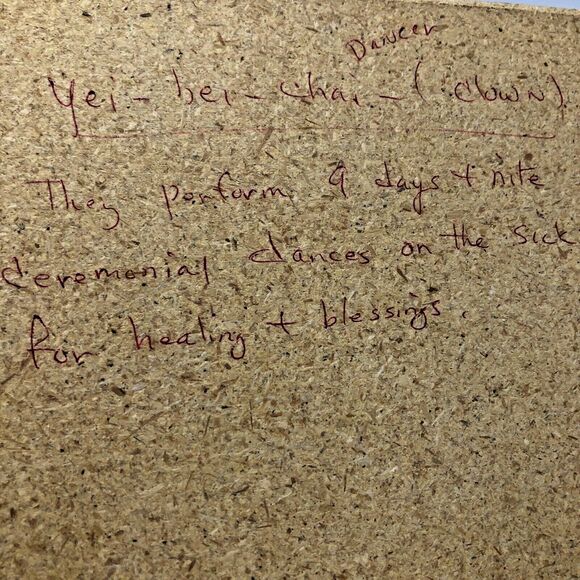 Dancer
Yei-bei-chai-(clown)
They perform 9 days + nite
ceremonial dances on the sick
for healing + blessings.